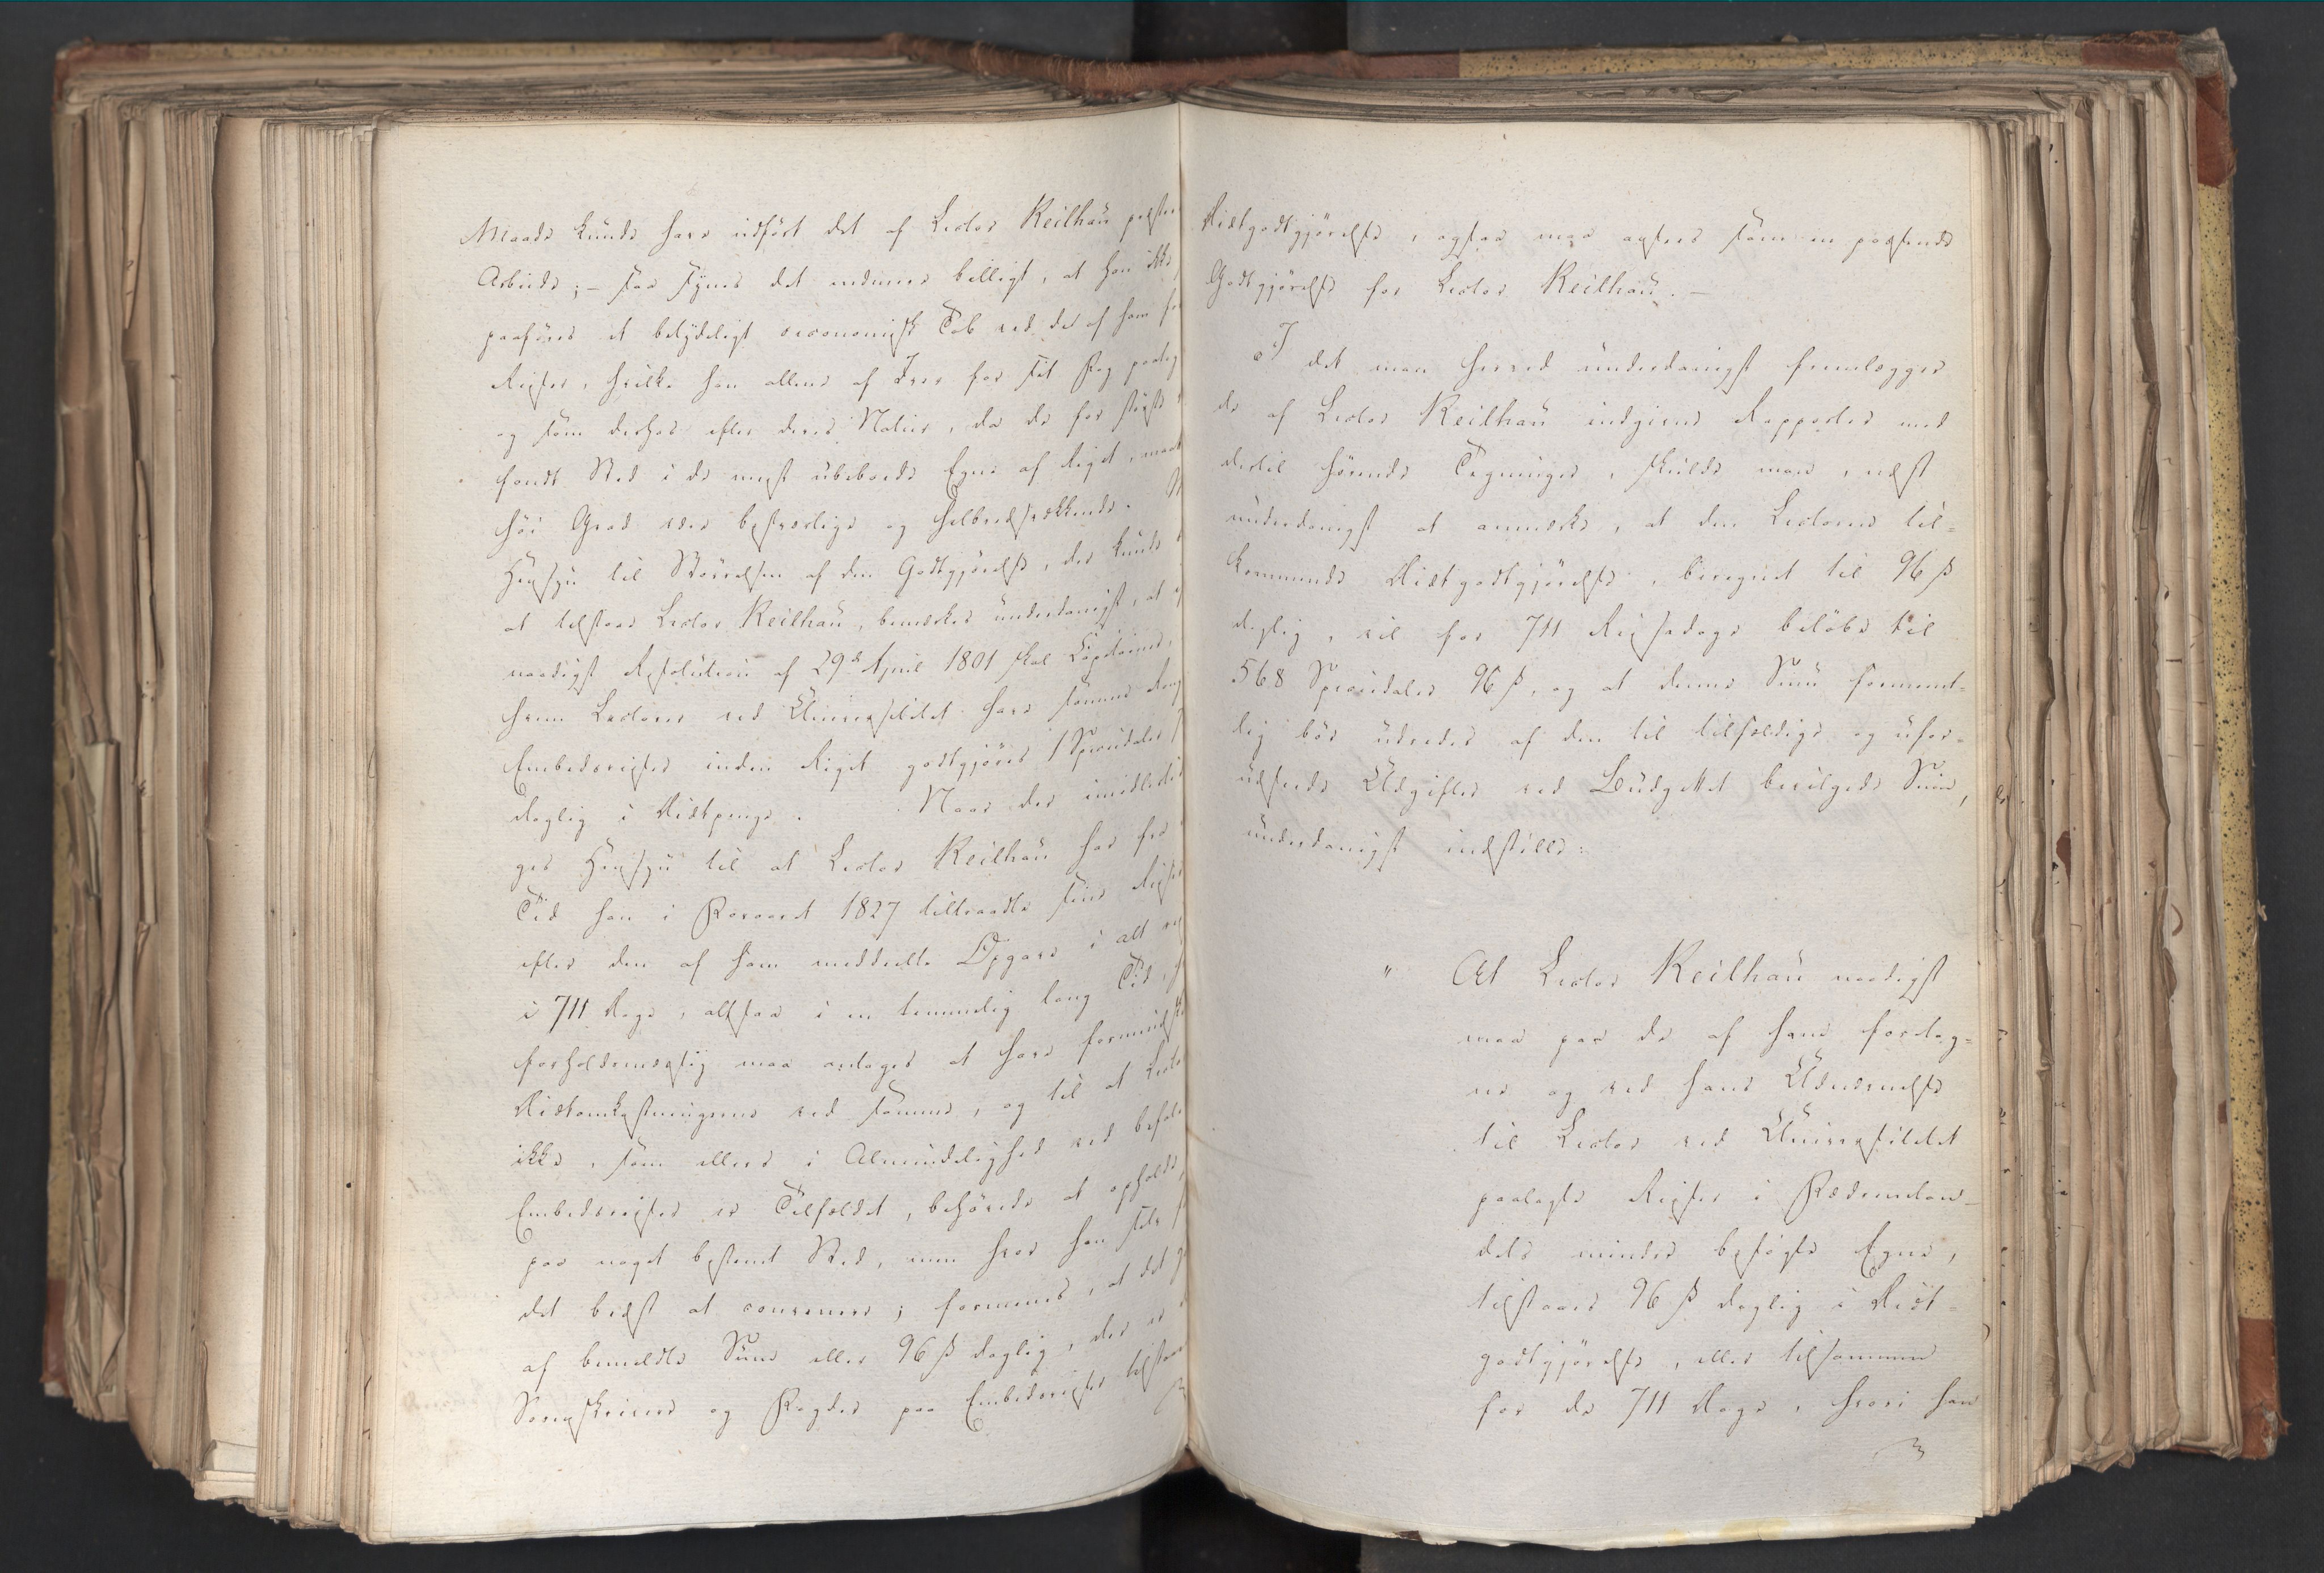 Maade kunde have udført det af Lector Keilhau præste
Arbeide; – saa synes det endnu billigt, at han ikke
paaføres et betydeligt oeconomisk Tab ved de af ham
Reiser, hvilke han allene af Iver for sit Fag paatog
og som derhos efter deres Natur, da de for største
fandt Sted i de meest ubeboede Egne af Riget, maatte
høi Grad være besværlige og helbredsvækkende.
Hensyn til Størrelsen af den Godtgjørelse, der kunde
at tilstaae Lector Keilhau, bemærkes underdanigst, at
naadigst Resolution af 29de April 1801 skal
hvem Lectorer ved Universitetet have samme Rang
Embedsreiser inden Riget godtgjøres 1 Speciedaler
daglig i Diætpenge. Naar der imidlertid
ges Hensyn til at Lector Keilhau har fra
Tid han i Foraaret 1827 tiltraadte sine Reiser
efter den af ham meddeelte Opgave i alt
i 711 Dage, altsaa i en temmelig lang Tid,
forholdsmæssig maa antages at have formindsket
Diætomkostningerne ved samme, og til at Lector
ikke, som ellers i Almindelighed ved befalede
Embedsreiser er Tilfældet, behøvede at opholde
paa noget bestemt Sted, men hvor han selv
det bedst at convenere; formenes, at det
af bemeldte Sum eller 96 ß daglig, der er
Sorenskrivere og Fogder paa Embedsreiser tilstaaet
Diætgodtgjørelse, ogsaa maa ansees som en passende
Godtgjørelse for Lector Keilhau. –
I det man herved underdanigst fremlægger
de af Lector Keilhau indgivne Rapporter med
dertil hørende Tegninger, skulde man, næst
underdanigst at anmærke, at den Lectoren til-
kommende Diætgodtgjørelse, beregnet til 96 ß
daglig, vil for 711 Reisedage beløbe til
568 Speciedaler 96 ß, og at denne Sum formeent-
lig bør udredes af den til tilfældige og ufor-
udseede Udgifter ved Budgettet bevilgede Sum,
underdanigst indstille:
" At Lector Keilhau naadigst
maa paa de af ham foretag-
ne og ved hans Udnævnelse
til Lector ved Universitetet
paalagte Reiser i Fædrenelan-
dets mindre besøgte Egne,
tilstaaes 96 ß daglig i Diæt-
godtgjørelse, eller tilsammen
for de 711 Dage, hvori han